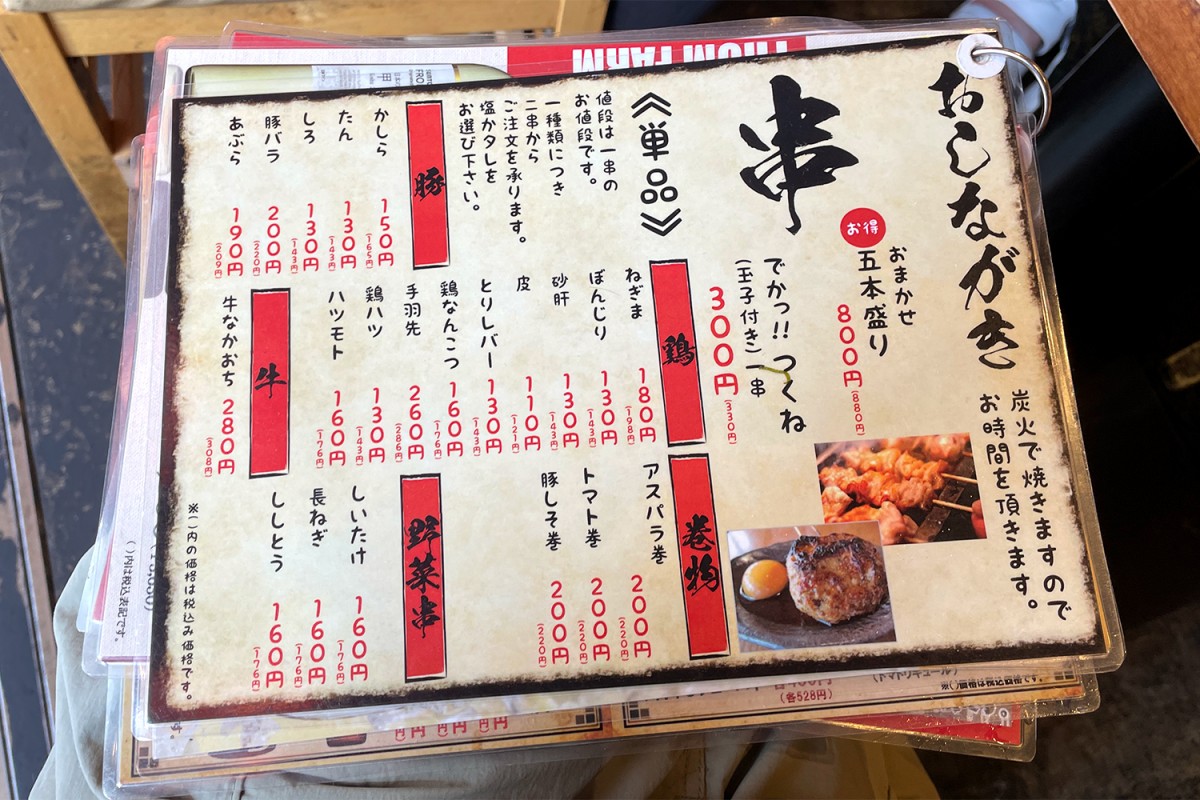 おしながき
炭火で焼きますので
お時間を頂きます。
串
お得
おまかせ
五本盛り
800円(880円)
でかっ!!つくね
(玉子付き)一串
300円(330円)
《単品》
値段は一串の
お値段です。
一種類につき
二串から
ご注文を承ります。
塩かタレを
お選び下さい。
豚
かしら 150円(165円)
たん 130円(143円)
しろ 130円(143円)
豚バラ 200円(220円)
あぶら 190円(209円)
鶏
ねぎま 180円(198円)
ぼんじり 130円(143円)
砂肝 130円(143円)
皮 110円(121円)
とりレバー 130円(143円)
鶏なんこつ 160円(176円)
手羽先 260円(286円)
鶏ハツ 130円(143円)
ハツモト 160円(176円)
牛
牛なかおち 280円(308円)
巻物
アスパラ巻 200円(220円)
トマト巻 200円(220円)
豚しそ巻 200円(220円)
野菜串
しいたけ 160円(176円)
長ねぎ 160円(176円)
ししとう 160円(176円)
※()内の価格は税込み価格です。
()内は税込表記です。
(各528円)
(トマトリキュール)
※()価格は税込価格です。